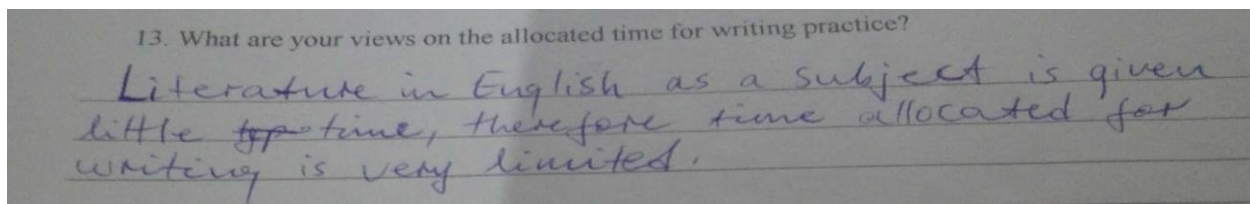 13. What are your views on the allocated time for writing practice?
Literature in English as a subject is given
little time, therefore time allocated for
writing is very limited.